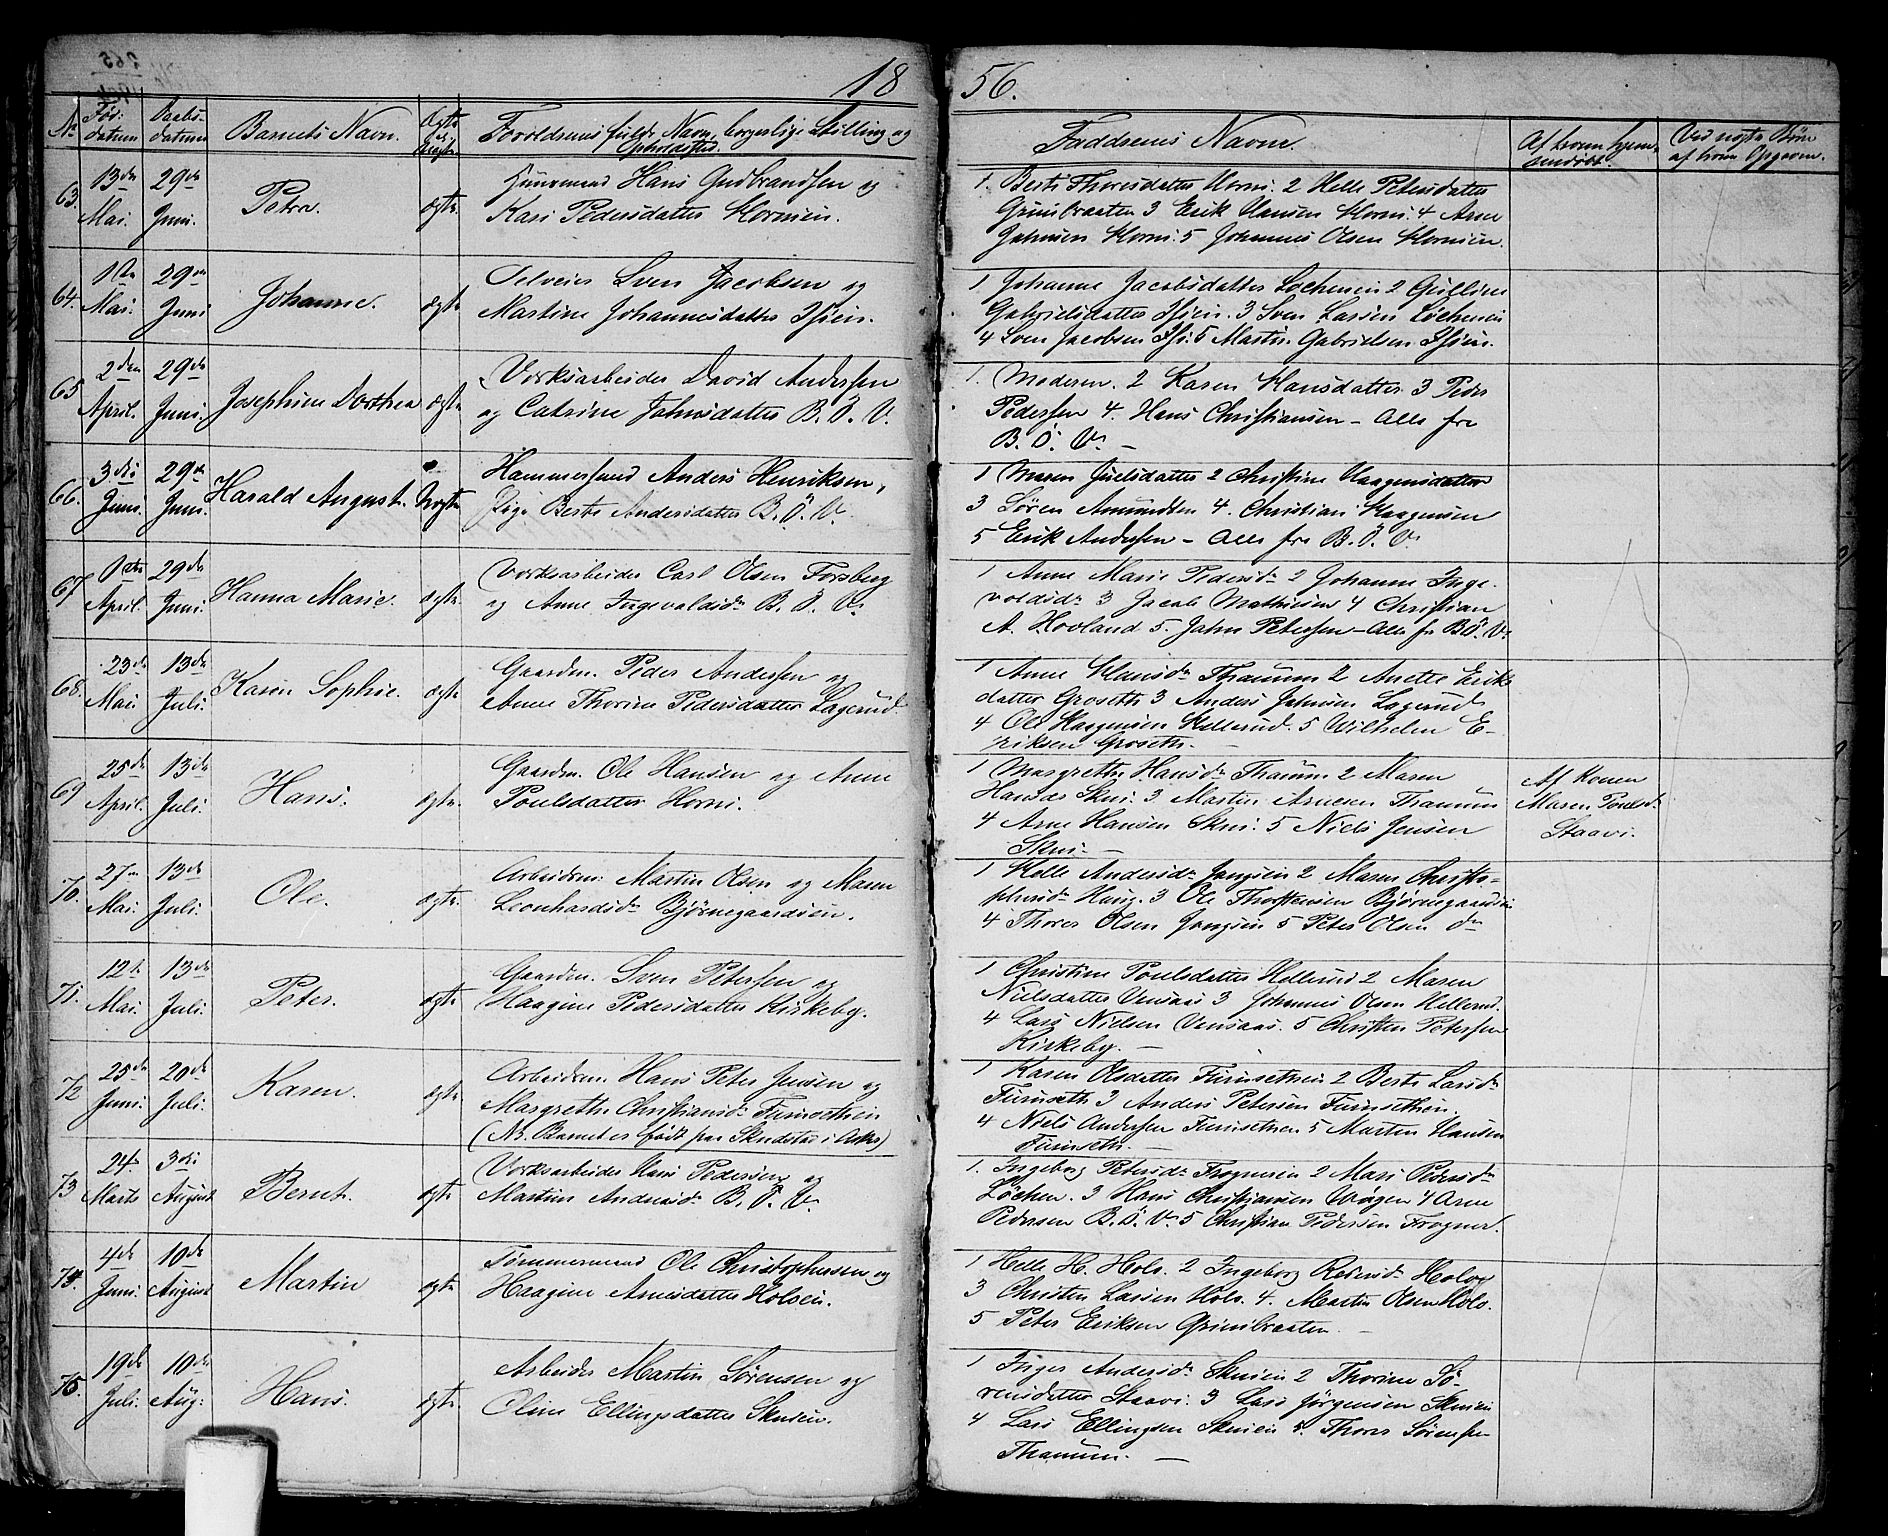 18
56.
No
Fød: datum
Daabs- datum
Barnets Navn.
Ægte el. Uægte
Forældrenes fulde Navn, borgerlige Stilling og
Opholdssted.
Faddrenes Navne.
Af hvem hjem-
medøbt.
Ved uægte Børn
af hvem Opgaven.
63.
13de Mai.
29de Juni.
Petra.
ægte
Huusmand Hans Gudbrandsen og
Kari Pedersdatter Hornien.
1. Berte Thoresdatter Horni. 2 Helle Petersdatter
Grinibraaten 3 Erik Hansen Horni. 4 Arne
Jahnsen Horni. 5 Johannes Olsen Hornien.
64.
1ste Mai.
29de Juni
Johanne.
ægte
Selveier Sven Jacobsen og
Martine Johannesdatter Isien.
1 Johanne Jacobsdatter Lochenen 2 Gulline
Gabrielsdatter Isien. 3 Sven Larsen Lochenen
4 Sven Jacobsen Isi. 5 Martin Gabrielsen Isien.
65
2den April.
29de Juni.
Josephine Dorthea
ægte
Værksarbeider David Andersen
og Catrine Jahnsdatter B. Ö. V.
1. Moderen. 2 Karen Hansdatter 3 Peder
Pedersen 4. Hans Christiansen – Alle fra
B. Ö. V. –
66.
3die Juni.
29de Juni.
Harald August.
Uægte
Hammersmed Anders Henriksen,
Pige Berte Andersdatter B. Ö. V.
1 Maren Juelsdatter 2 Christine Haagensdatter
3 Sören Amundsen 4. Christian Haagensen
5 Erik Andersen – Alle fra B. Ö. V.
67
April.
29de Juni.
Hanna Marie.
ægte.
Værksarbeider Carl Olsen Forsberg
og Anne Ingevaldsdr B. Ö. V.
1 Anne Marie Pedersdr 2 Johanne Inge-
valdsdr 3 Jacob Mathiesen 4 Christian
A. Hovland 5. Jahn Petersen – Alle fr B. Ö. V.
68.
23de Mai
13de Juli.
Karen Sophie.
ægte
Gaardm. Peder Andersen og
Anne Thorine Pedersdatter Lagerud.
1 Anne Hansdr Thanum 2 Anette Erik-
datter Groseth 3 Anders Jahnsen Lagerud
4 Ole Haagensen Hellerud. 5 Wilhelm E-
riksen Groseth. –
69
25de April.
13de Juli.
Hans.
ægte.
Gaardm. Ole Hansen og Anne
Poulsdatter Horni.
1 Margrethe Hansdr Thanum 2 Maren
Hansdr Skui. 3 Martin Arnesen Thanum
4 Arne Hansen Skui. 5 Niels Jensen
Skui. –
Af Konen
Maren Poulsdr
Staavi.
70.
27de Mai.
13de Juli.
Ole.
ægte.
Arbeidsm: Martin Olsen og Maren
Leonhardsdr Bjørnegaardsien.
1 Helle Andersdr Jongsien 2 Maren Christo-
phersdr Haug. 3 Ole Thorstensen Bjørnegaardsien
4 Thores Olsen Jongsien 5 Peter Olsen do
71.
12te Mai.
13de Juli.
Peter.
ægte
Gaardm. Sven Petersen og
Haagine Pedersdatter Kirkeby.
1 Christine Poulsdatter Hellerud 2 Maren
Nielsdatter Vensaas 3 Johannes Olsen Hellerud.
4 Lars Nielsen Vensaas. 5 Christen Petersen
Kirkeby. –
72
25de Juni.
20de Juli.
Karen.
ægte
Arbeidsm. Hans Peter Jensen og
Margrethe Christiansdr Furusethien
(NB. Barnet er født paa Skudstad i Asker)
1 Karen Olsdatter Furusethien 2 Berte Larsdr
Furuseth 3 Anders Petersen Furusethien.
4 Niels Andersen Furusethien. 5 Marten Hansen
Furuseth. –
73
24. Marts
3die August
Bernt.
ægte
Værksarbeider Hans Pedersen og
Martine Andersdr B. Ö. V.
1. Ingeborg Petersdr Frognerien 2 Mari Pedersdr
Løchen. 3 Hans Christiansen Wøyen 4 Arne
Pedersen B. Ö. V. 5 Christian Pedersen Frogner.
74.
4de Juni.
10de August
Martin
ægte
Tømmermand Ole Christophersen og
Haagine Arnesdatter Holsien.
1 Helle H. Hols. 2 Ingeborg Pedersdr Holo
3 Christen Larsen Hols. 4. Martin Olsen Hols.
5 Peter Eriksen Grinibraaten. –
75.
19de Juli.
10de Aug:
Hans.
ægte.
Arbeider Martin Sørensen og
Oline Ellingsdatter Skuien.
1 Inger Andersdr Skuien 2 Thorine Sø-
rensdatter Staavi. 3 Lars Jørgensen Skuien
4 Lars Ellingsen Skuien 4. Thores Sørensen
Thanum. –